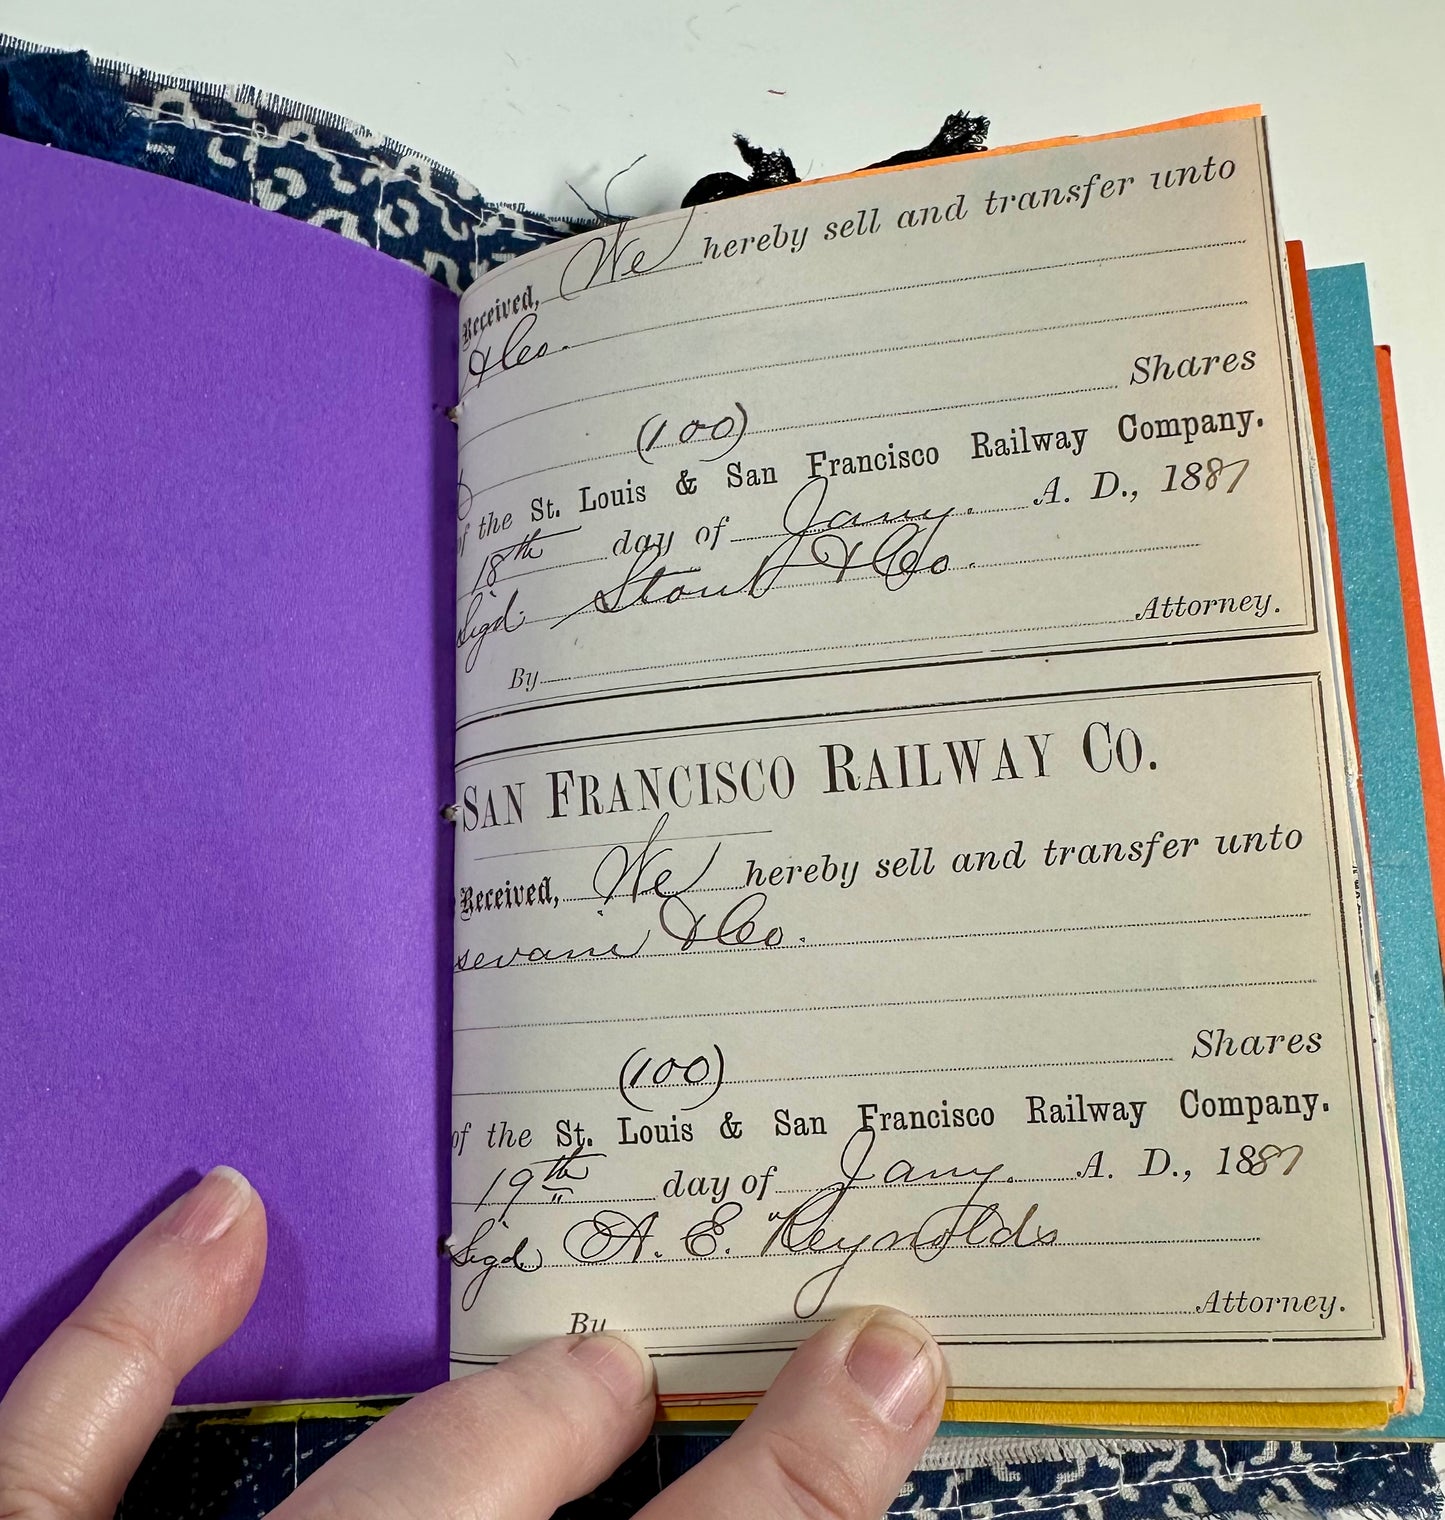 Received, We hereby sell and transfer unto
& Co.
(100) Shares
of the St. Louis & San Francisco Railway Company.
18th day of Jany. A. D., 1887
Sigd. Stout & Co.
By Attorney.
SAN FRANCISCO RAILWAY CO.
Received, We hereby sell and transfer unto
& Co.
(100) Shares
of the St. Louis & San Francisco Railway Company.
19th day of Jany. A. D., 1887
Sigd A. E. Reynolds
By Attorney.